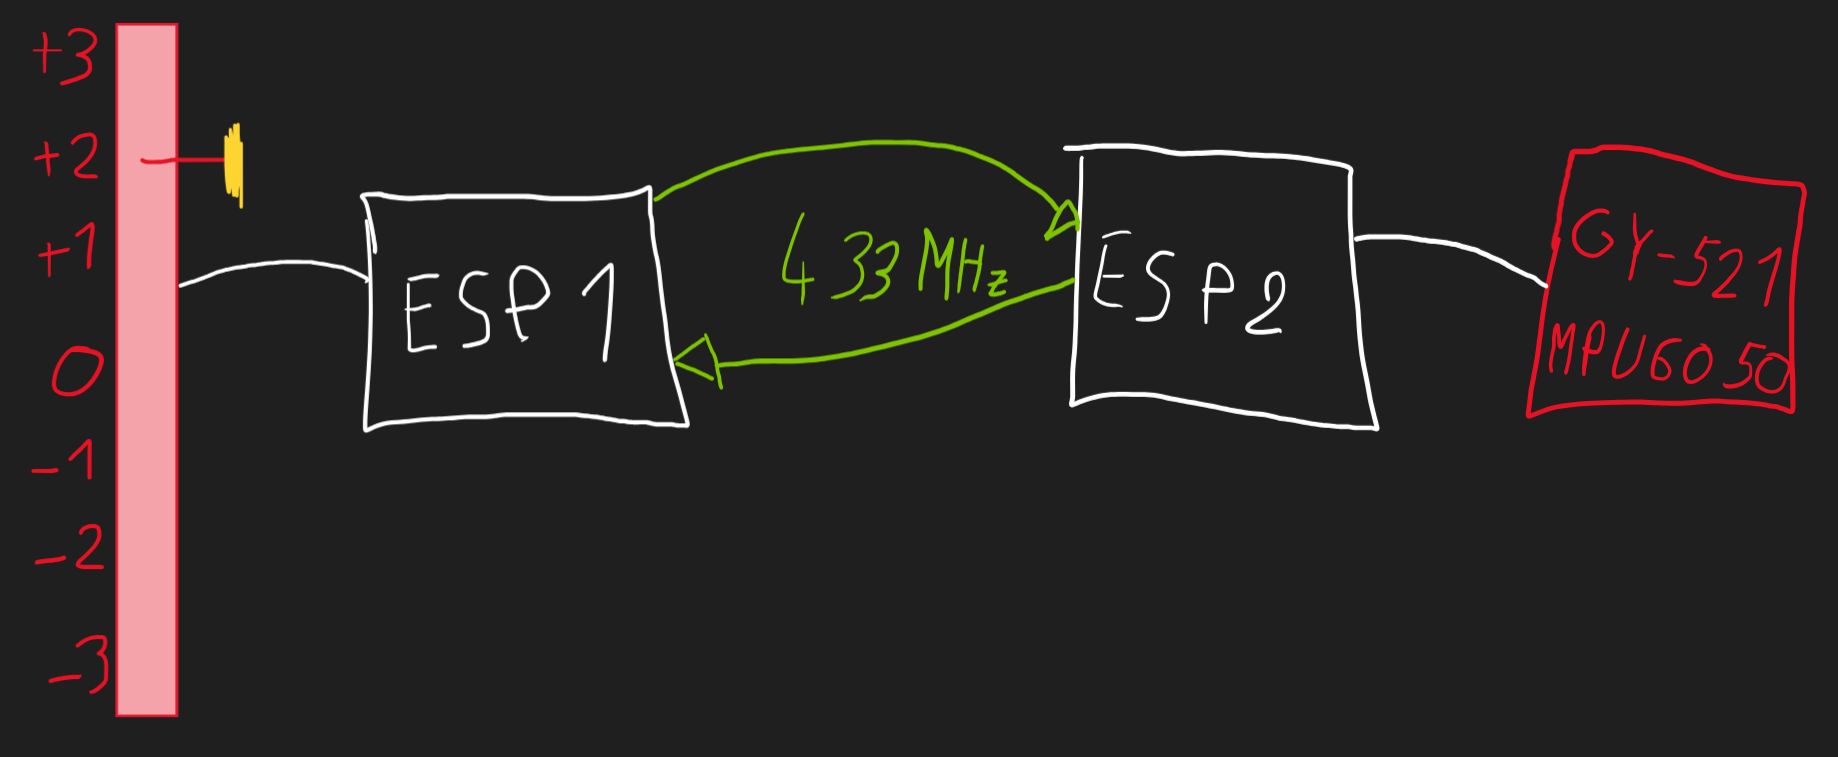 +3
+2
+1
0
-1
-2
-3
ESP1
433MHz
ESP2
GY-521
MPU6050